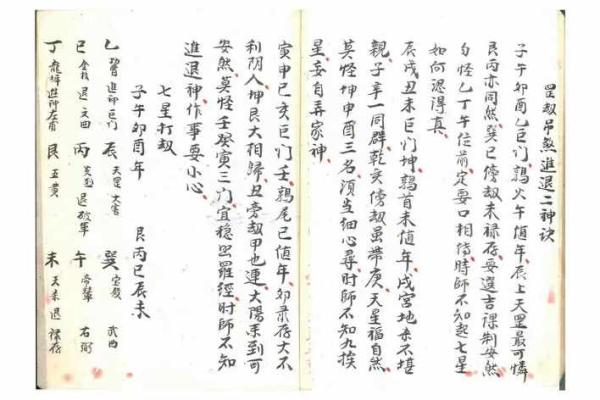 罡劫吊煞進退二神诀
子午卯酉乙巨门鶉火午值年辰上天罡最可憐
艮丙亦同然巽巳傍劫未禄存要選吉課制安然
勾怪乙丁午位前定要口相傳時師不知起七星
如何認得真
辰戌丑未巨门坤鶉首未值年戌宮地杀不堪
親子辛一同群乾亥傍劫虽带庚天星福自然
莫怪坤申酉三名須当細心尋时師不知九挨
星妄自弄家神
寅申巳亥巨门壬鶉尾巳值年卯录存大不
利阴人坤艮大相歸丑旁劫甲也連太陽未到可
安然莫怪壬癸寅三门宜穏照羅經时師不知
進退神作事要小心
七星打劫
子午卯酉年 艮丙巳辰未
乙 進神巨门 辰 天罡大害 巽 武曲
巳 退文曲 丙 退破軍 午 帝輦 右弼
丁 龍墀進神左甫 艮 五黄 未 天杀退禄存